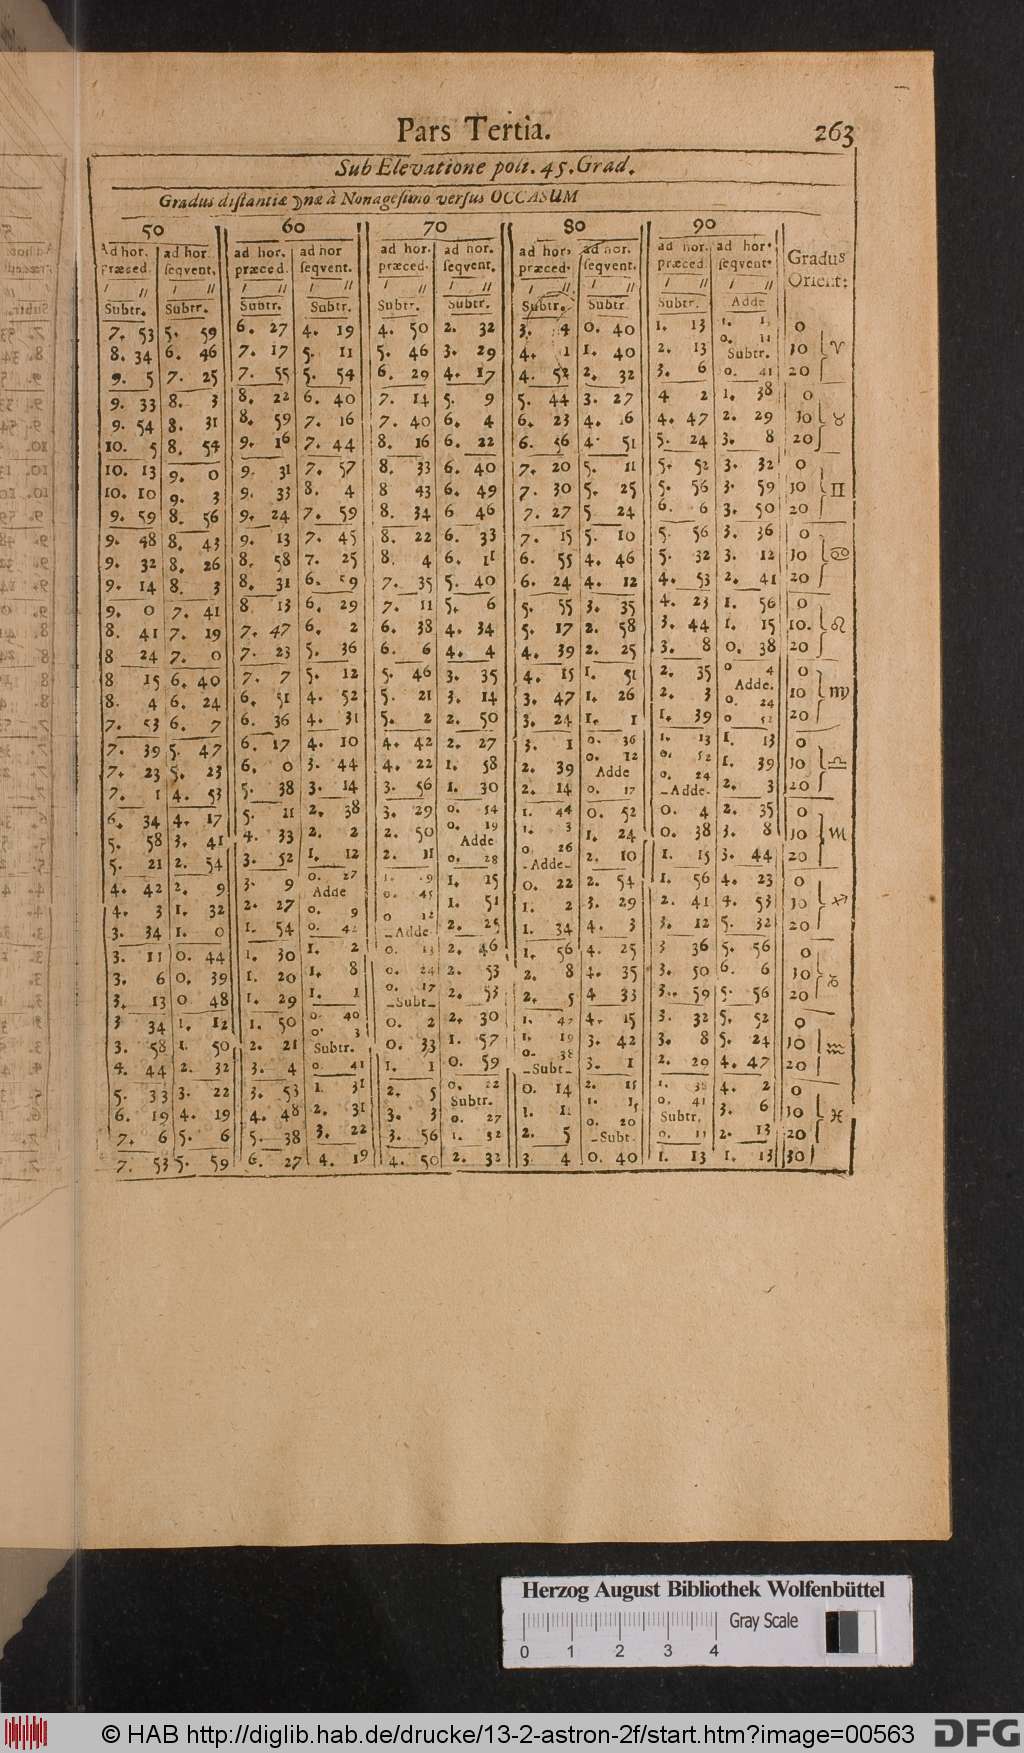 Pars Tertia. 263
Sub Elevatione poli. 45. Grad.
Gradus distantiæ ☽næ à Nonagesimo versus OCCASUM
50 60 70 80 90
Ad hor. præced. ad hor. seqvent. ad hor. præced. ad hor seqvent. ad hor. præced. ad hor. seqvent. ad hor. præced. ad hor. seqvent. ad hor. præced. ad hor. seqvent. Gradus Orient:
Subtr. Subtr. Subtr. Subtr. Subtr. Subtr. Subtr. Subtr Subtr. Adde
7. 53 5. 59 6. 27 4. 19 4. 50 2. 32 3. 4 0. 40 1. 13 0 ♈
8. 34 6. 46 7. 17 5. 11 5. 46 3. 29 4. 1 1. 40 2. 13 0. 11 Subtr. 10
9. 5 7. 25 7. 55 5. 54 6. 29 4. 17 4. 52 2. 32 3. 6 0. 41 20
9. 33 8. 3 8. 22 6. 40 7. 14 5. 9 5. 44 3. 27 4 2 1. 38 0 ♉
9. 54 8. 31 8. 59 7. 16 7. 40 6. 4 6. 23 4. 16 4. 47 2. 29 10
10. 5 8. 54 9. 16 7. 44 8. 16 6. 22 6. 56 4. 51 5. 24 3. 8 20
10. 13 9. 0 9. 31 7. 57 8. 33 6. 40 7. 20 5. 11 5. 52 3. 32 0 ♊
10. 10 9. 3 9. 33 8. 4 8 43 6. 49 7. 30 5. 25 5. 56 3. 59 10
9. 59 8. 56 9. 24 7. 59 8. 34 6 46 7. 27 5 24 6. 6 3. 50 20
9. 48 8. 43 9. 13 7. 45 8. 22 6. 33 7. 15 5. 10 5. 56 3. 36 0 ♋
9. 32 8. 26 8. 58 7. 25 8. 4 6. 11 6. 55 4. 46 5. 32 3. 12 10
9. 14 8. 3 8. 31 6. 59 7. 35 5. 40 6. 24 4. 12 4. 53 2. 41 20
9. 0 7. 41 8. 13 6. 29 7. 11 5. 6 5. 55 3. 35 4. 23 1. 56 0 ♌
8. 41 7. 19 7. 47 6. 2 6. 38 4. 34 5. 17 2. 58 3. 44 1. 15 10.
8 24 7. 0 7. 23 5. 36 6. 6 4. 4 4. 39 2. 25 3. 8 0. 38 20
8 15 6. 40 7. 7 5. 12 5. 46 3. 35 4. 15 1. 51 2. 35 0 4 0 ♍
8. 4 6. 24 6. 51 4. 52 5. 21 3. 14 3. 47 1. 26 2. 3 Adde. 0. 24 10
7. 53 6. 7 6. 36 4. 31 5. 2 2. 50 3. 24 1. 1 1. 39 0 52 20
7. 39 5. 47 6. 17 4. 10 4. 42 2. 27 3. 1 0. 36 1. 13 1. 13 0 ♎
7. 23 5. 23 6. 0 3. 44 4. 22 1. 58 2. 39 0. 12 Adde 0. 52 1. 39 10
7. 1 4. 53 5. 38 3. 14 3. 56 1. 30 2. 14 0. 17 0. 24 Adde. 2. 3 20
6. 34 4. 17 5. 11 2. 38 3. 29 0. 54 1. 44 0. 52 0. 4 2. 35 0 ♏
5. 58 3. 41 4. 33 2. 2 2. 50 0. 19 Adde 1. 3 1. 24 0. 38 3. 8 10
5. 21 2. 54 3. 52 1. 12 2. 11 0. 28 0 26 Adde 2. 10 1. 15 3. 44 20
4. 42 2. 9 3. 9 0. 27 Adde 1. 15 0. 22 2. 54 1. 56 4. 23 0 ♐
4. 3 1. 32 2. 27 0. 9 0. 45 1. 51 1. 2 3. 29 2. 41 4. 53 10
3. 34 1. 0 1. 54 0. 42 0 12 Adde 2. 25 1. 34 4. 3 3. 12 5. 32 20
3. 11 0. 44 1. 30 1. 2 0. 13 2. 46 1. 56 4. 25 3 36 5. 56 0 ♑
3. 6 0. 39 1. 20 1. 8 0. 24 2. 53 2. 8 4. 35 3. 50 6. 6 10
3. 13 0 48 1. 29 1. 1 0. 17 Subt 2. 53 2. 5 4 33 3. 59 5. 56 20
3 34 1. 12 1. 50 0. 40 0. 2 2. 30 1. 47 4. 15 3. 32 5. 52 0 ♒
3. 58 1. 50 2. 21 0. 3 Subtr. 0. 33 1. 57 1. 19 3. 42 3. 8 5. 24 10
4. 44 2. 32 3. 4 0. 41 1. 1 0. 59 0. 38 Subt 3. 1 2. 29 4. 47 20
5. 33 3. 22 3. 53 1. 31 2. 5 0. 22 Subtr. 0. 14 2. 15 1. 38 4. 2 0 ♓
6. 19 4. 19 4. 48 2. 31 3. 3 0. 27 1. 11 1. 15 0. 41 Subtr. 3. 6 10
7. 6 5. 6 5. 38 3. 22 3. 56 1. 32 2. 5 0. 20 Subt 0. 11 2. 13 20
7. 53 5. 59 6. 27 4. 19 4. 50 2. 32 3. 4 0. 40 1. 13 1. 13 30
Herzog August Bibliothek Wolfenbüttel
Gray Scale
0 1 2 3 4
© HAB http://diglib.hab.de/drucke/13-2-astron-2f/start.htm?image=00563
DFG